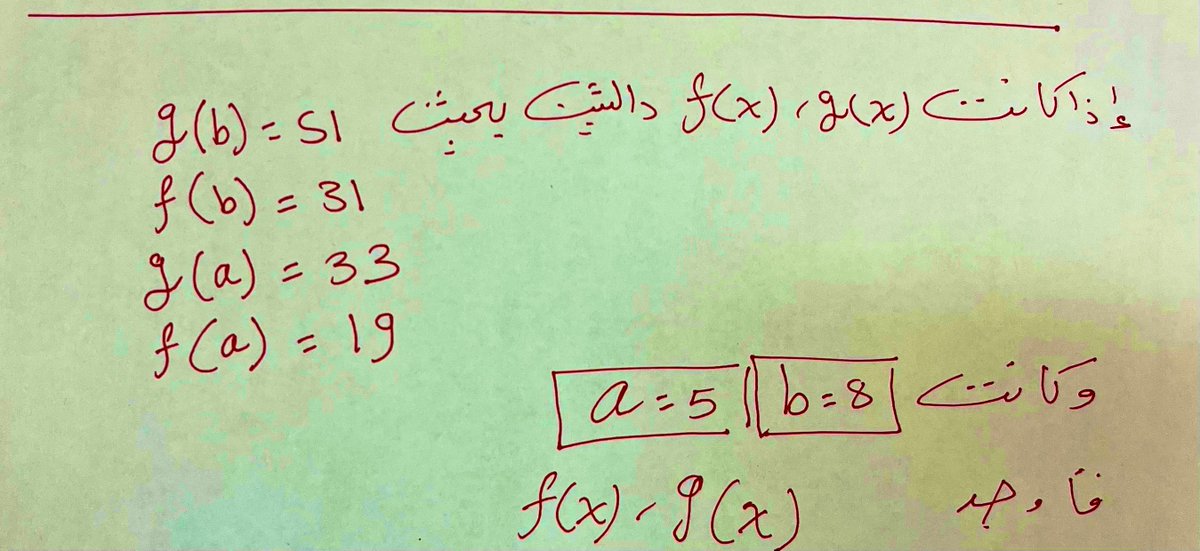 إذا كانت f(x) ، g(x) دالتين بحيث g(b) = 51
f(b) = 31
g(a) = 33
f(a) = 19
وكانت b=8 || a=5
فأوجد f(x) ، g(x)